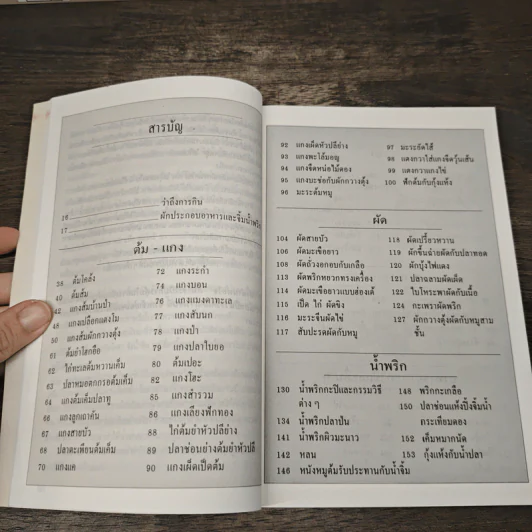 สารบัญ
16 ว่าถึงการกิน
17 ผักประกอบอาหารและจิ้มน้ำพริก
ต้ม - แกง
38 ต้มโคล้ง
40 ต้มส้ม
42 แกงส้มบ้านป่า
48 แกงเปลือกแตงโม
50 แกงส้มผักกวางตุ้ง
61 ต้มยำโฮกฮือ
62 ไก่ทะเลต้มหวานเค็ม
63 ปลาหมอตกกรอบต้มเค็ม
64 แกงต้มเค็มปลาทู
66 แกงลูกเถาคัน
67 แกงสายบัว
68 ปลาตะเพียนต้มเค็ม
70 แกงแค
72 แกงระกำ
74 แกงบอน
76 แกงแมงดาทะเล
77 แกงสับนก
78 แกงป่า
79 แกงปลาใบยอ
80 ต้มเปอะ
82 แกงโฮะ
85 แกงสำรวม
86 แกงเลียงฟักทอง
88 ไก่ต้มยำหัวปลีย่าง
89 ปลาช่อนย่างต้มยำหัวปลี
90 แกงเผ็ดเป็ดต้ม
92 แกงเผ็ดหัวปลีย่าง
93 แกงพะโล้มอญ
94 แกงจืดหน่อไม้ดอง
95 แกงบะช่อกับผักกวางตุ้ง
96 มะระต้มหมู
97 มะระยัดไส้
98 แตงกวาใส่แกงจืดวุ้นเส้น
99 แตงกวาแกงไข่
100 ฟักต้มกับกุ้งแห้ง
ผัด
104 ผัดสายบัว
106 ผัดมะเขือยาว
108 ผัดถั่วงอกบกับเกลือ
113 ผัดพริกหยวกทรงเครื่อง
114 ผัดมะเขือยาวแบบส่องเต้
115 เป็ด ไก่ ผัดขิง
116 มะระขึ้นผัดไข่
117 สับปะรดผัดกับหมู
118 ผัดเปรี้ยวหวาน
119 ผักขึ้นฉ่ายผัดกับปลาทอด
120 ผักบุ้งไฟแดง
121 ปลาฉลามผัดเผ็ด
122 ใบโหระพาผัดกับเนื้อ
124 กะเพราผัดพริก
127 ผักกวางตุ้งผัดกับหมูสาม
ชั้น
น้ำพริก
130 น้ำพริกกะปิและกรรมวิธี
ต่าง ๆ
134 น้ำพริกปลาป่น
141 น้ำพริกผิวมะนาว
142 หลน
146 หนังหมูต้มรับประทานกับน้ำจิ้ม
148 พริกกะเกลือ
150 ปลาช่อนแห้งปิ้งจิ้มน้ำ
กระเทียมดอง
152 เค็มหมากนัด
153 กุ้งแห้งกับน้ำปลา